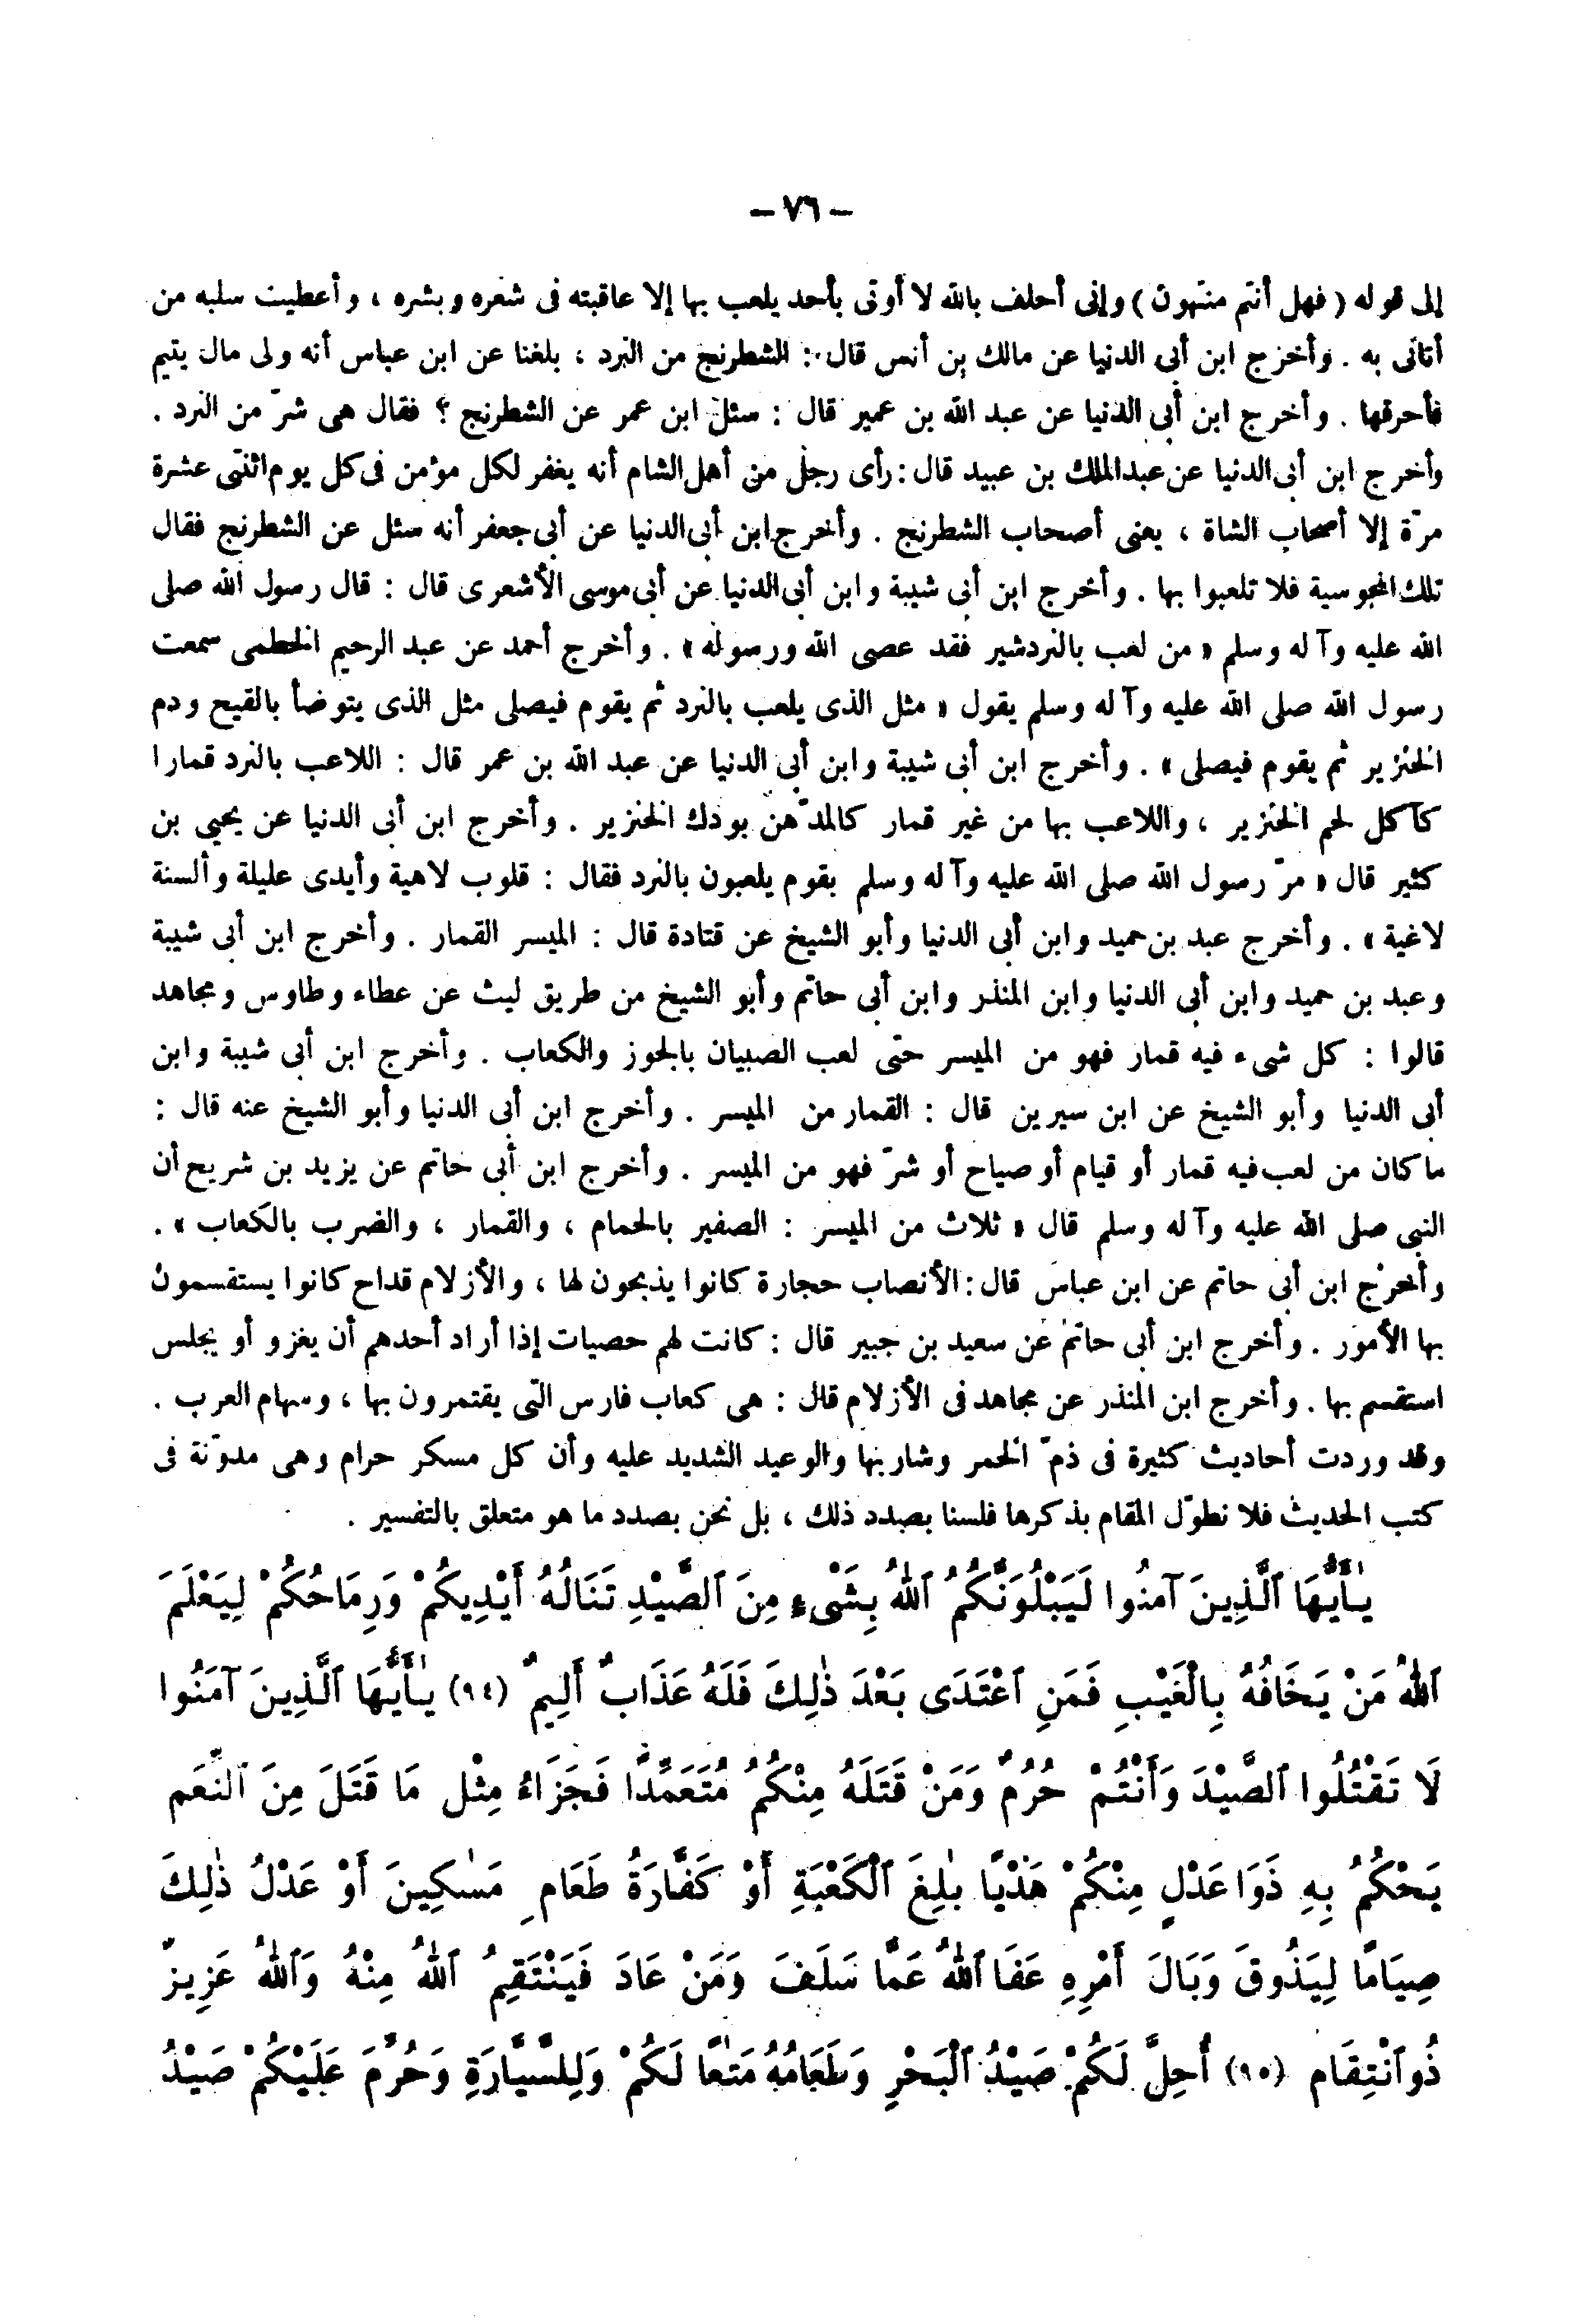 – ٧٦ –
إلى قوله ( فهل أنتم منتهون ) وإنى أحلف بالله لا أوتى بأحد يلعب بها إلا عاقبته فى شعره وبشره ، وأعطيت سلبه من
أتانى به . وأخرج ابن أبى الدنيا عن مالك بن أنس قال : الشطرنج من النرد ، بلغنا عن ابن عباس أنه ولى مال يتيم
فأحرقها . وأخرج ابن أبى الدنيا عن عبد الله بن عمير قال : سئل ابن عمر عن الشطرنج ؟ فقال هى شرّ من النرد .
وأخرج ابن أبى الدنيا عن عبد الملك بن عبيد قال : رأى رجل من أهل الشام أنه يغفر لكل مؤمن فى كل يوم اثنتى عشرة
مرّة إلا أصحاب الشاة ، يعنى أصحاب الشطرنج . وأخرج ابن أبى الدنيا عن أبى جعفر أنه سئل عن الشطرنج فقال
تلك المجوسية فلا تلعبوا بها . وأخرج ابن أبى شيبة وابن أبى الدنيا عن أبى موسى الأشعرى قال : قال رسول الله صلى
الله عليه وآله وسلم « من لعب بالنردشير فقد عصى الله ورسوله » . وأخرج أحمد عن عبد الرحيم الخطمى سمعت
رسول الله صلى الله عليه وآله وسلم يقول « مثل الذى يلعب بالنرد ثم يقوم فيصلى مثل الذى يتوضأ بالقيح ودم
الخنزير ثم يقوم فيصلى » . وأخرج ابن أبى شيبة وابن أبى الدنيا عن عبد الله بن عمر قال : اللاعب بالنرد قمارا
كآكل لحم الخنزير ، واللاعب بها من غير قمار كالمدّهن بودك الخنزير . وأخرج ابن أبى الدنيا عن يحيى بن
كثير قال « مرّ رسول الله صلى الله عليه وآله وسلم بقوم يلعبون بالنرد فقال : قلوب لاهية وأيدى عليلة وألسنة
لاغية » . وأخرج عبد بن حميد وابن أبى الدنيا وأبو الشيخ عن قتادة قال : الميسر القمار . وأخرج ابن أبى شيبة
وعبد بن حميد وابن أبى الدنيا وابن المنذر وابن أبى حاتم وأبو الشيخ من طريق ليث عن عطاء وطاوس ومجاهد
قالوا : كل شىء فيه قمار فهو من الميسر حتى لعب الصبيان بالجوز والكعاب . وأخرج ابن أبى شيبة وابن
أبى الدنيا وأبو الشيخ عن ابن سيرين قال : القمار من الميسر . وأخرج ابن أبى الدنيا وأبو الشيخ عنه قال :
ما كان من لعب فيه قمار أو قيام أو صياح أو شرّ فهو من الميسر . وأخرج ابن أبى حاتم عن يزيد بن شريح أن
النبى صلى الله عليه وآله وسلم قال « ثلاث من الميسر : الصفير بالحمام ، والقمار ، والضرب بالكعاب » .
وأخرج ابن أبى حاتم عن ابن عباس قال : الأنصاب حجارة كانوا يذبحون لها ، والأزلام قداح كانوا يستقسمون
بها الأمور . وأخرج ابن أبى حاتم عن سعيد بن جبير قال : كانت لهم حصيات إذا أراد أحدهم أن يغزو أو يجلس
استقسم بها . وأخرج ابن المنذر عن مجاهد فى الأزلام قال : هى كعاب فارس التى يقتمرون بها ، وسهام العرب .
وقد وردت أحاديث كثيرة فى ذمّ الخمر وشاربها والوعيد الشديد عليه وأن كل مسكر حرام وهى مدوّنة فى
كتب الحديث فلا نطوّل المقام بذكرها فلسنا بصدد ذلك ، بل نحن بصدد ما هو متعلق بالتفسير .
يٰأَيُّهَا ٱلَّذِينَ آمَنُوا لَيَبْلُوَنَّكُمُ ٱللهُ بِشَىْءٍ مِنَ ٱلصَّيْدِ تَنَالُهُ أَيْدِيكُمْ وَرِمَاحُكُمْ لِيَعْلَمَ
ٱللهُ مَنْ يَخَافُهُ بِالْغَيْبِ فَمَنِ ٱعْتَدَى بَعْدَ ذٰلِكَ فَلَهُ عَذَابٌ أَلِيمٌ (٩٤) يٰأَيُّهَا ٱلَّذِينَ آمَنُوا
لَا تَقْتُلُوا ٱلصَّيْدَ وَأَنْتُمْ حُرُمٌ وَمَنْ قَتَلَهُ مِنْكُمُ مُتَعَمِّدًا فَجَزَاءُ مِثْلِ مَا قَتَلَ مِنَ ٱلنَّعَمِ
يَحْكُمُ بِهِ ذَوَا عَدْلٍ مِنْكُمْ هَدْيًا بٰلِغَ ٱلْكَعْبَةِ أَوْ كَفَّارَةُ طَعَامِ مَسٰكِينَ أَوْ عَدْلُ ذٰلِكَ
صِيَامًا لِيَذُوقَ وَبَالَ أَمْرِهِ عَفَا ٱللهُ عَمَّا سَلَفَ وَمَنْ عَادَ فَيَنْتَقِمُ ٱللهُ مِنْهُ وَٱللهُ عَزِيزٌ
ذُو ٱنْتِقَامٍ (٩٥) أُحِلَّ لَكُمْ صَيْدُ ٱلْبَحْرِ وَطَعَامُهُ مَتٰعًا لَكُمْ وَلِلسَّيَّارَةِ وَحُرِّمَ عَلَيْكُمْ صَيْدُ